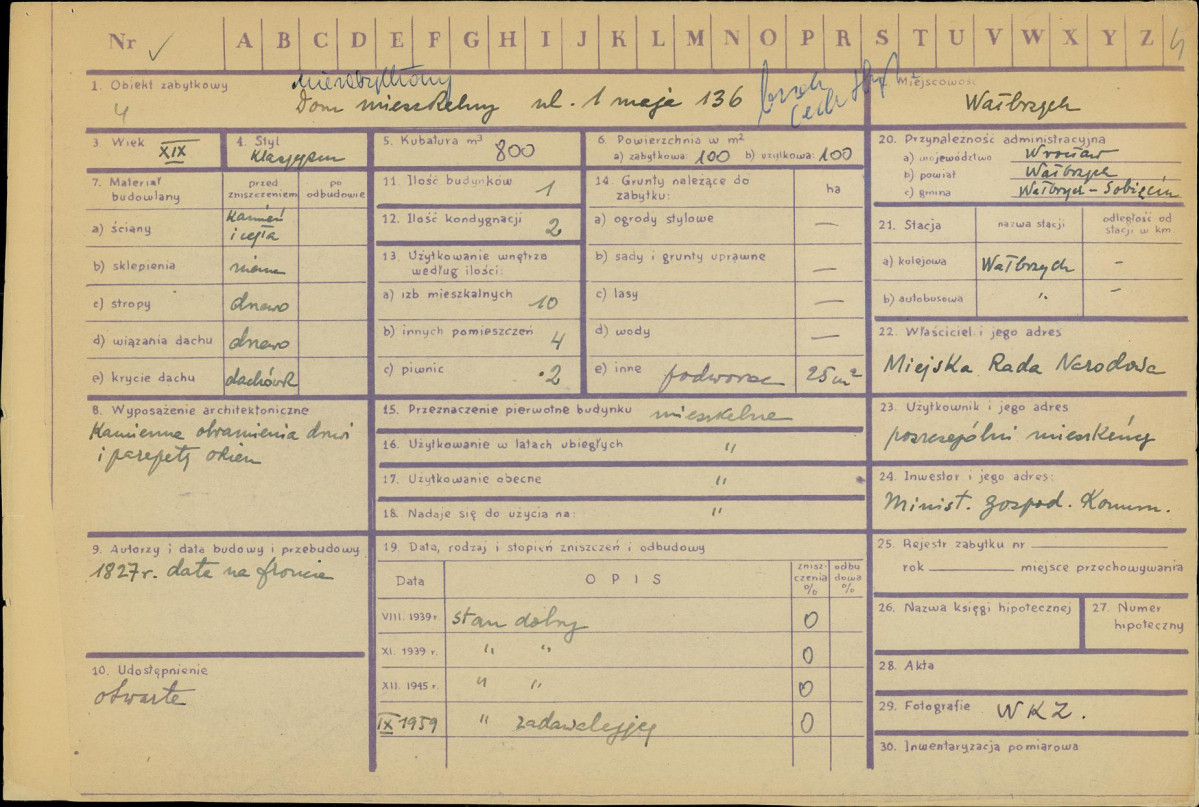 Nr ✓ A B C D E F G H I J K L M N O P R S T U V W X Y Z
1. Obiekt zabytkowy
4
Dom mieszkalny ul. 1 maja 136
Miejscowość
Wałbrzych
3 Wiek XIX
4. Styl Klasycyzm
5. Kubatura m³ 800
6 Powierzchnia w m²
a) zabytkowa: 100 b) użytkowa: 100
20. Przynależność administracyjna
a) województwo Wrocław
b) powiat Wałbrzych
c) gmina Wałbrzych - Sobięcin
7. Materiał budowlany
przed zniszczeniem
po odbudowie
a) ściany kamień i cegła
b) sklepienia
c) stropy drewno
d) wiązania dachu drewno
e) krycie dachu dachówk
11. Ilość budynków 1
12. Ilość kondygnacji 2
13. Użytkowanie wnętrza
według ilości:
a) izb mieszkalnych 10
b) innych pomieszczeń 4
c) piwnic 2
14. Grunty należące do
zabytku:
ha
a) ogrody stylowe —
b) sady i grunty uprawne —
c) lasy —
d) wody —
e) inne podworze 25 m²
21. Stacja
nazwa stacji
odległość od
stacji w km.
a) kolejowa Wałbrzych -
b) autobusowa " -
22. Właściciel i jego adres
Miejska Rada Narodowa
8. Wyposażenie architektoniczne
Kamienne obramienia drzwi
i parapety okien
15. Przeznaczenie pierwotne budynku mieszkalne
16. Użytkowanie w latach ubiegłych "
17. Użytkowanie obecne "
18. Nadaje się do użycia na: "
23. Użytkownik i jego adres
poszczególni mieszkańcy
24. Inwestor i jego adres:
Minist. Gospod. Komun.
9. Autorzy i data budowy i przebudowy
1827 r. data na froncie
19. Data, rodzaj i stopień zniszczeń i odbudowy
Data
OPIS
znisz-
czenia
%
odbu
dowa
%
VIII. 1939 r. stan dobry 0
XI. 1939 r. " " 0
XII. 1945 r. " " 0
IX 1959 " zadawalający 0
25. Rejestr zabytku nr
rok miejsce przechowywania
26. Nazwa księgi hipotecznej
27. Numer
hipoteczny
10. Udostępnienie
otwarte
28. Akta
29. Fotografie WKZ.
30. Inwentaryzacja pomiarowa